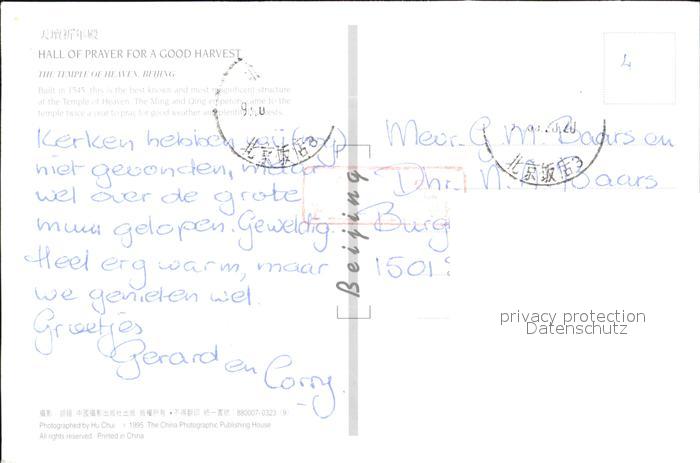 天壇祈年殿
HALL OF PRAYER FOR A GOOD HARVEST
THE TEMPLE OF HEAVEN, BEIJING
Built in 1545, this is the best known and most magnificent structure
at the Temple of Heaven. The Ming and Qing emperors came to the
temple twice a year to pray for good weather and plentiful harvests.
4
Kerken hebben wij (nog)
niet gevonden, maar
wel over de grote
muur gelopen. Geweldig.
Heel erg warm, maar
we genieten wel.
Groetjes
Gerard en
Corry.
北京饭店3
北京饭店3
Beijing
Mevr. G.M. Baars en
Dhr. N. Baars
Burg
1501
privacy protection
Datenschutz
攝影：胡錘 中國攝影出版社出版 版權所有 •不得翻印 統一書號：880007-0323 (9)
Photographed by Hu Chui © 1995 The China Photographic Publishing House
All rights reserved. Printed in China